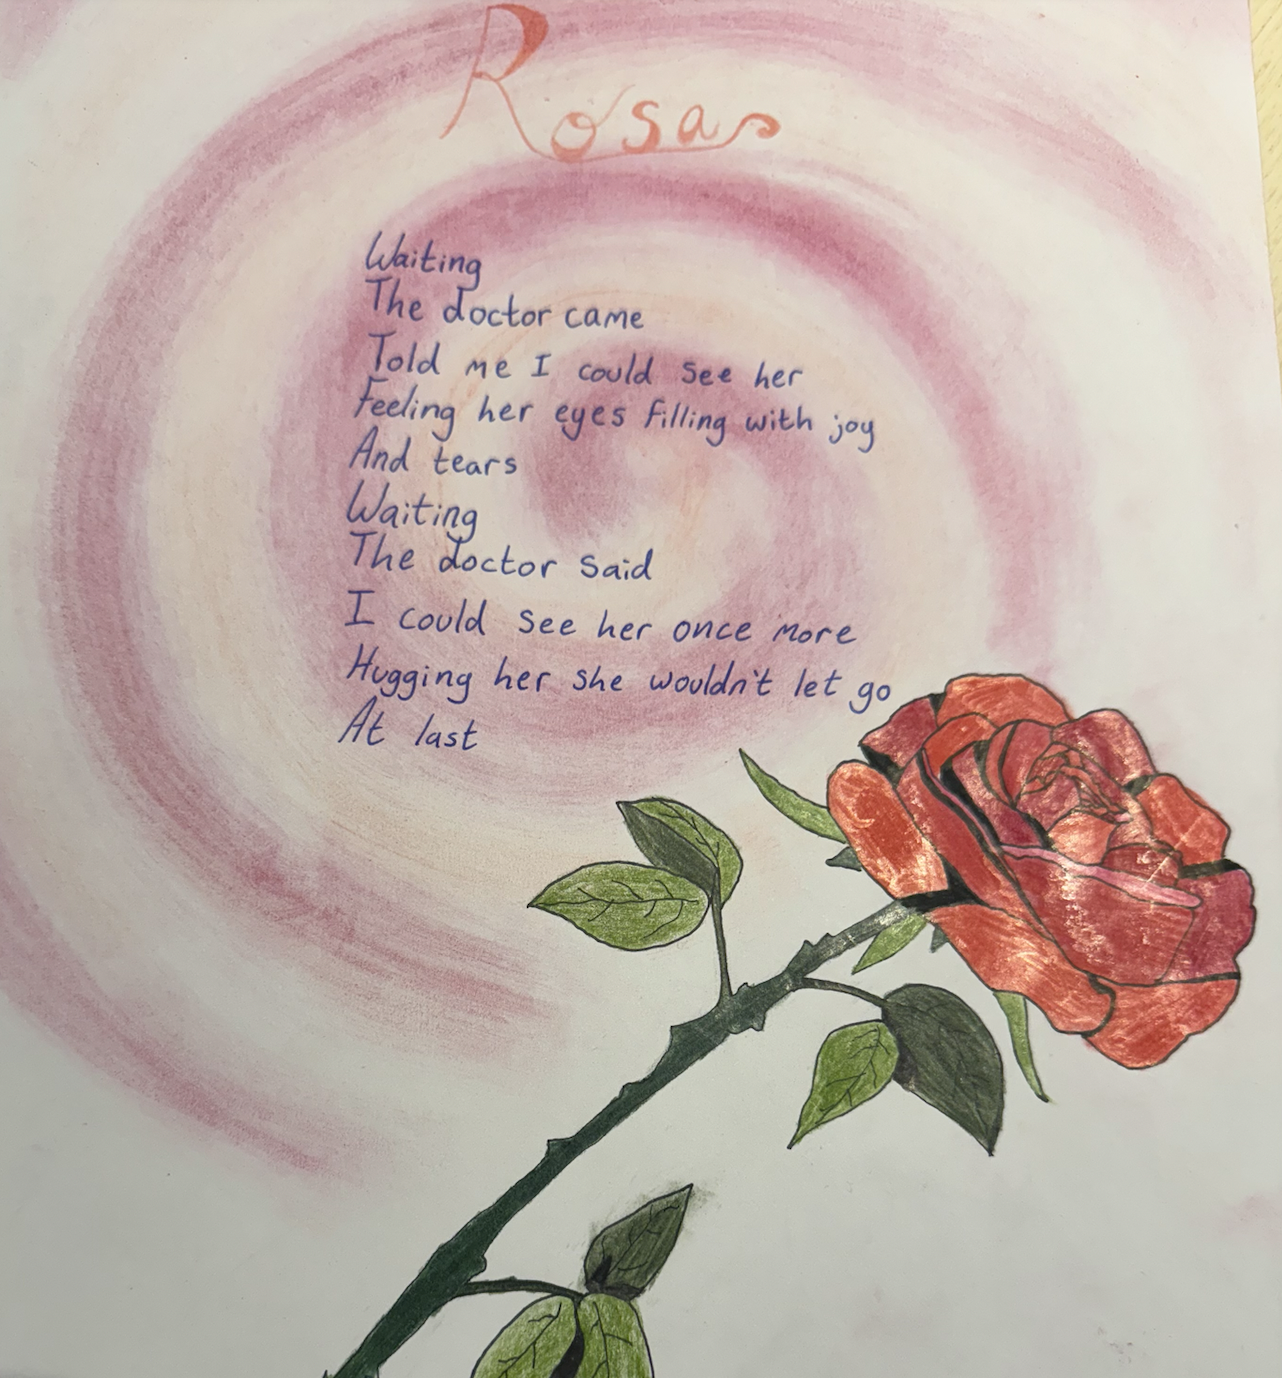 Rosas
Waiting
The doctor came
Told me I could see her
Feeling her eyes filling with joy
And tears
Waiting
The doctor said
I could see her once more
Hugging her she wouldn't let go
At last